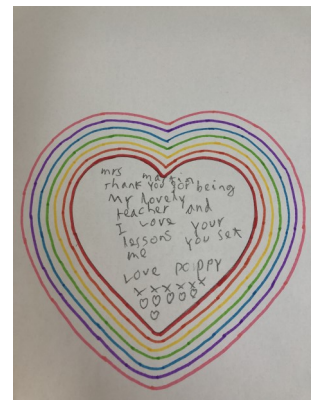 mrs martin
thank you for being
my lovely
teacher and
I love your
lessons you set
me
Love poppy
xxxxxx
♡♡♡♡♡
♡